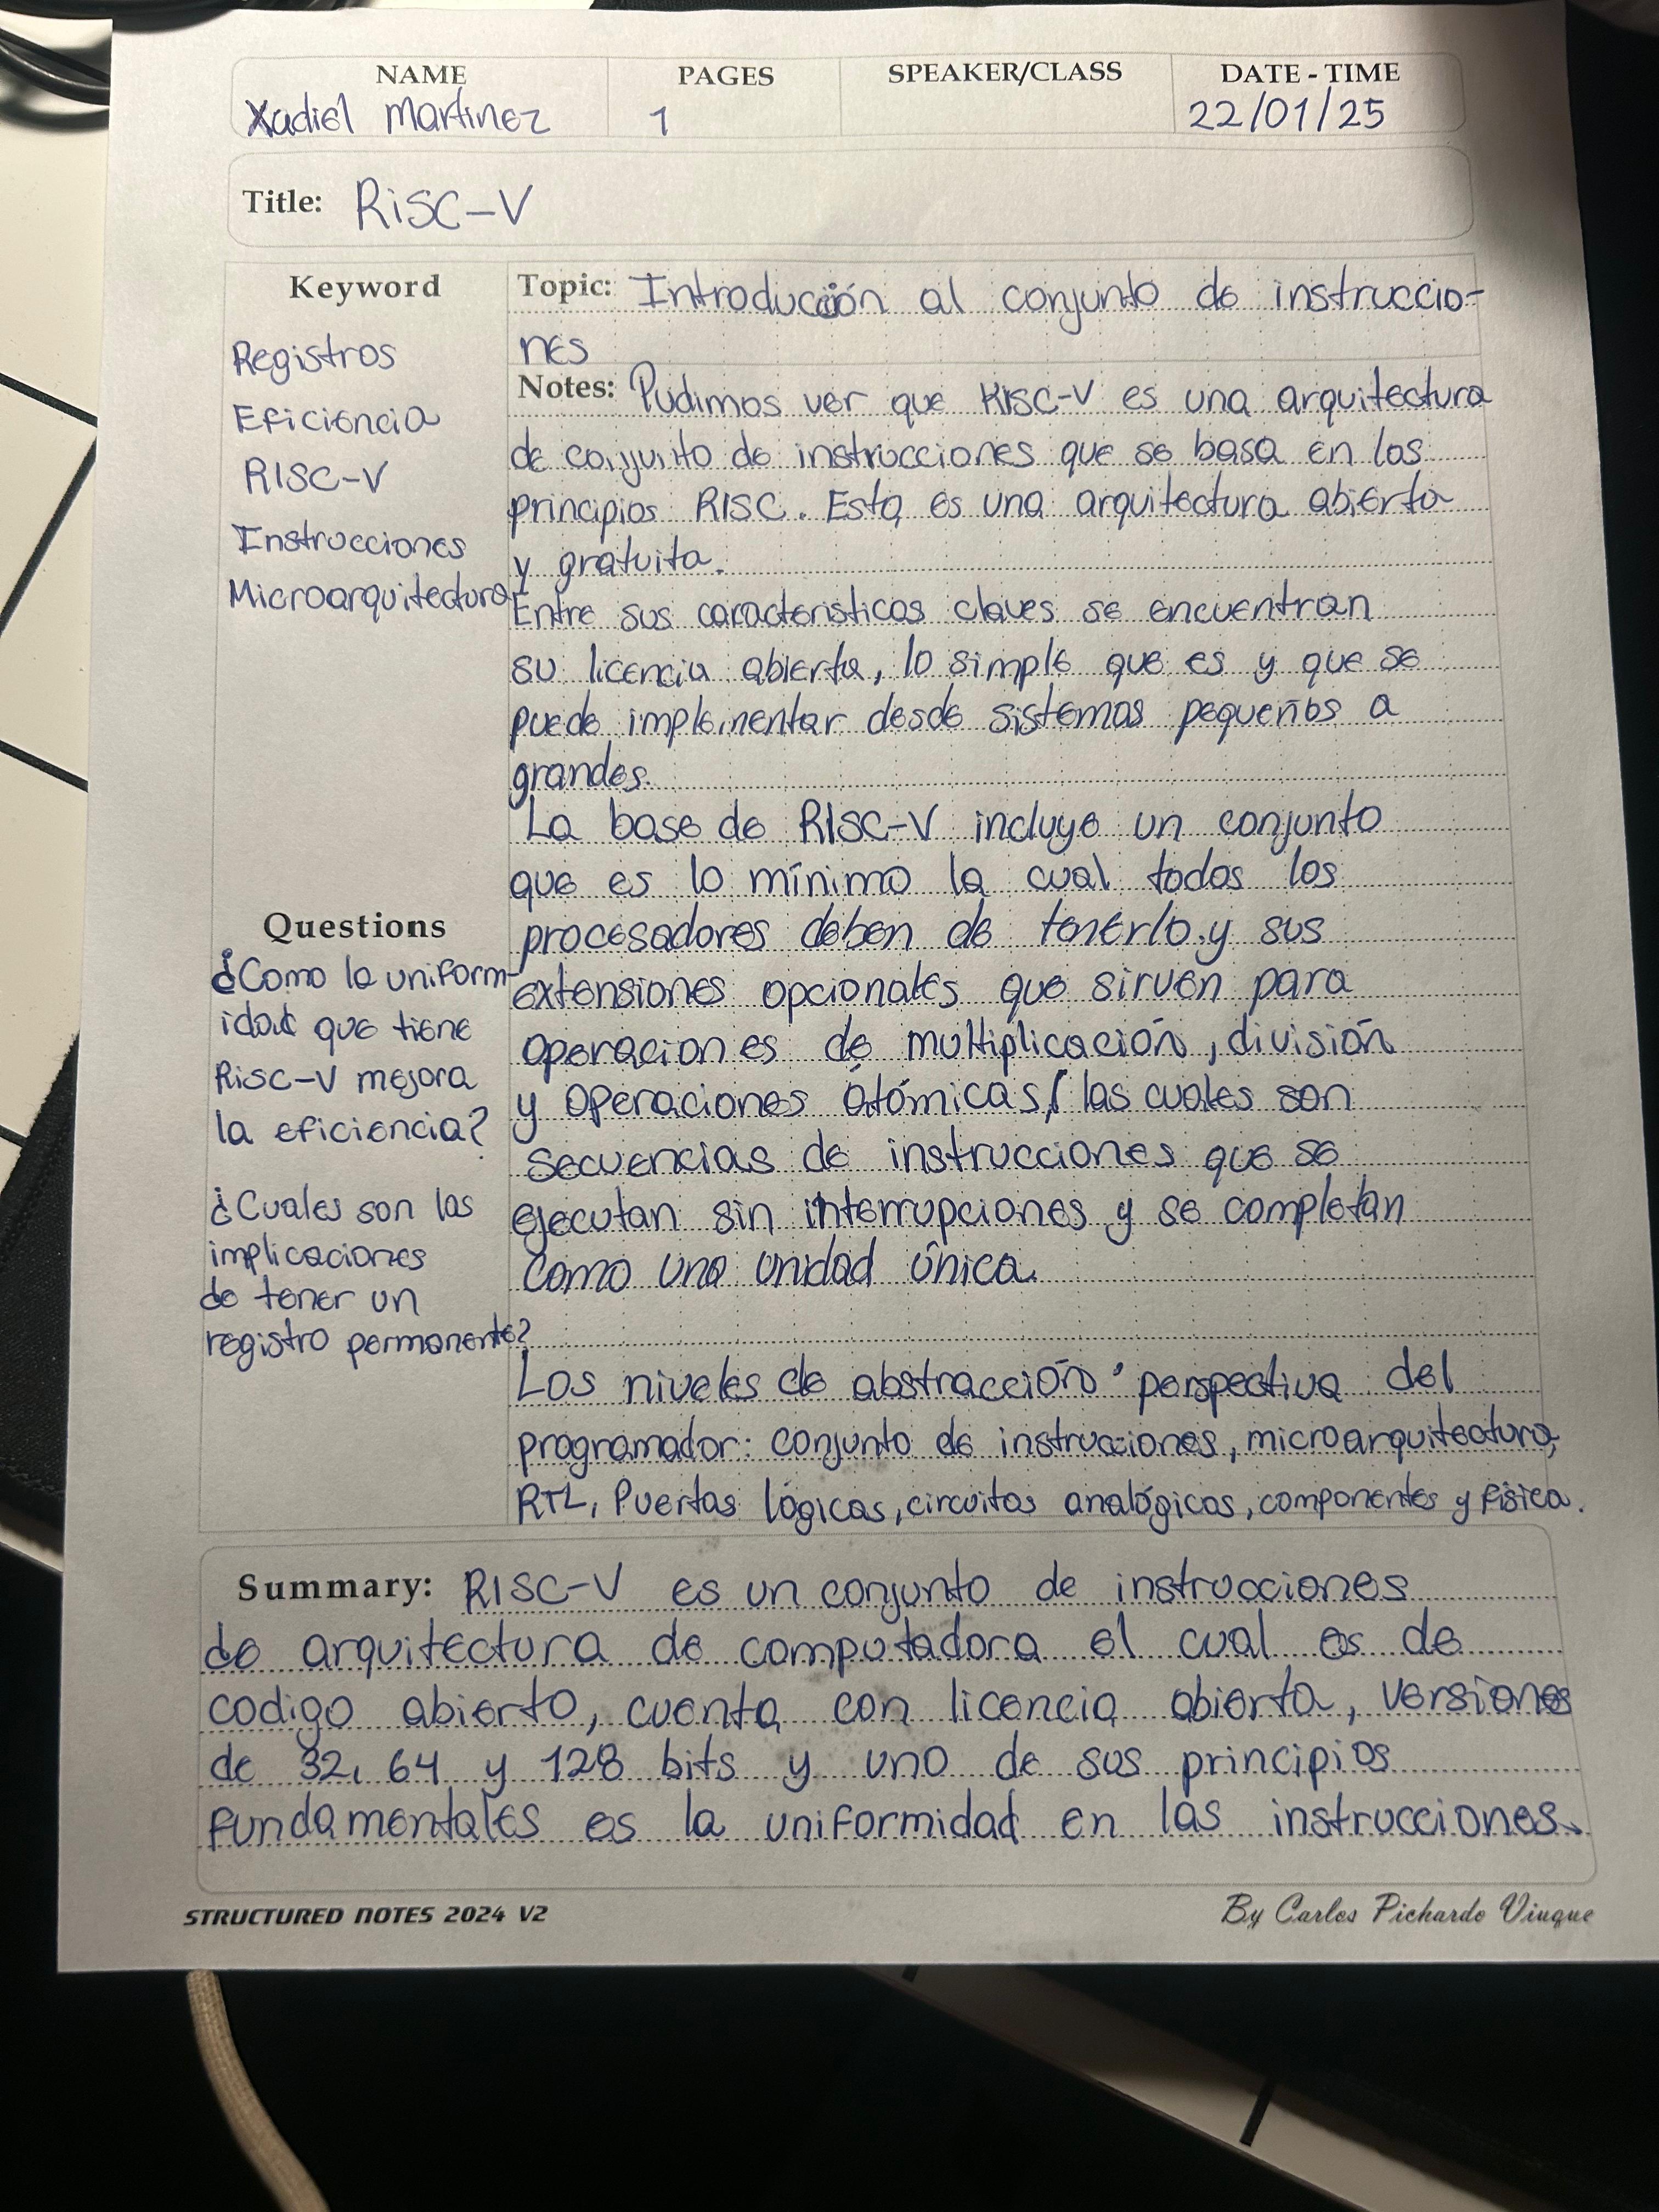 NAME PAGES SPEAKER/CLASS DATE - TIME
Xadiel Martinez 1 22/01/25
Title: RiSC-V
Keyword
Registros
Eficiencia
RISC-V
Instrucciones
Microarquitectura
Questions
¿Como la uniform-
idad que tiene
RiSC-V mejora
la eficiencia?
¿Cuales son las
implicaciones
de tener un
registro permanente?
Topic: Introducción al conjunto de instruccio-
nes
Notes: Pudimos ver que RISC-V es una arquitectura
de conjunto de instrucciones que se basa en los
principios RISC. Esta es una arquitectura abierta
y gratuita.
Entre sus caracteristicas claves se encuentran
su licencia abierta, lo simple que es y que se
puede implementar desde sistemas pequeños a
grandes.
La base de RISC-V incluye un conjunto
que es lo mínimo la cual todos los
procesadores deben de tenerlo y sus
extensiones opcionales que sirven para
operaciones de multiplicación, división
y operaciones atómicas, las cuales son
secuencias de instrucciones que se
ejecutan sin interrupciones y se completan
como una unidad única.
Los niveles de abstracción: perspectiva del
programador: conjunto de instrucciones, microarquitectura,
RTL, Puertas lógicas, circuitos analógicos, componentes y física.
Summary: RISC-V es un conjunto de instrucciones
de arquitectura de computadora el cual es de
codigo abierto, cuenta con licencia abierta, versiones
de 32, 64 y 128 bits y uno de sus principios
fundamentales es la uniformidad en las instrucciones.
STRUCTURED NOTES 2024 V2 By Carlos Pichardo Viuque